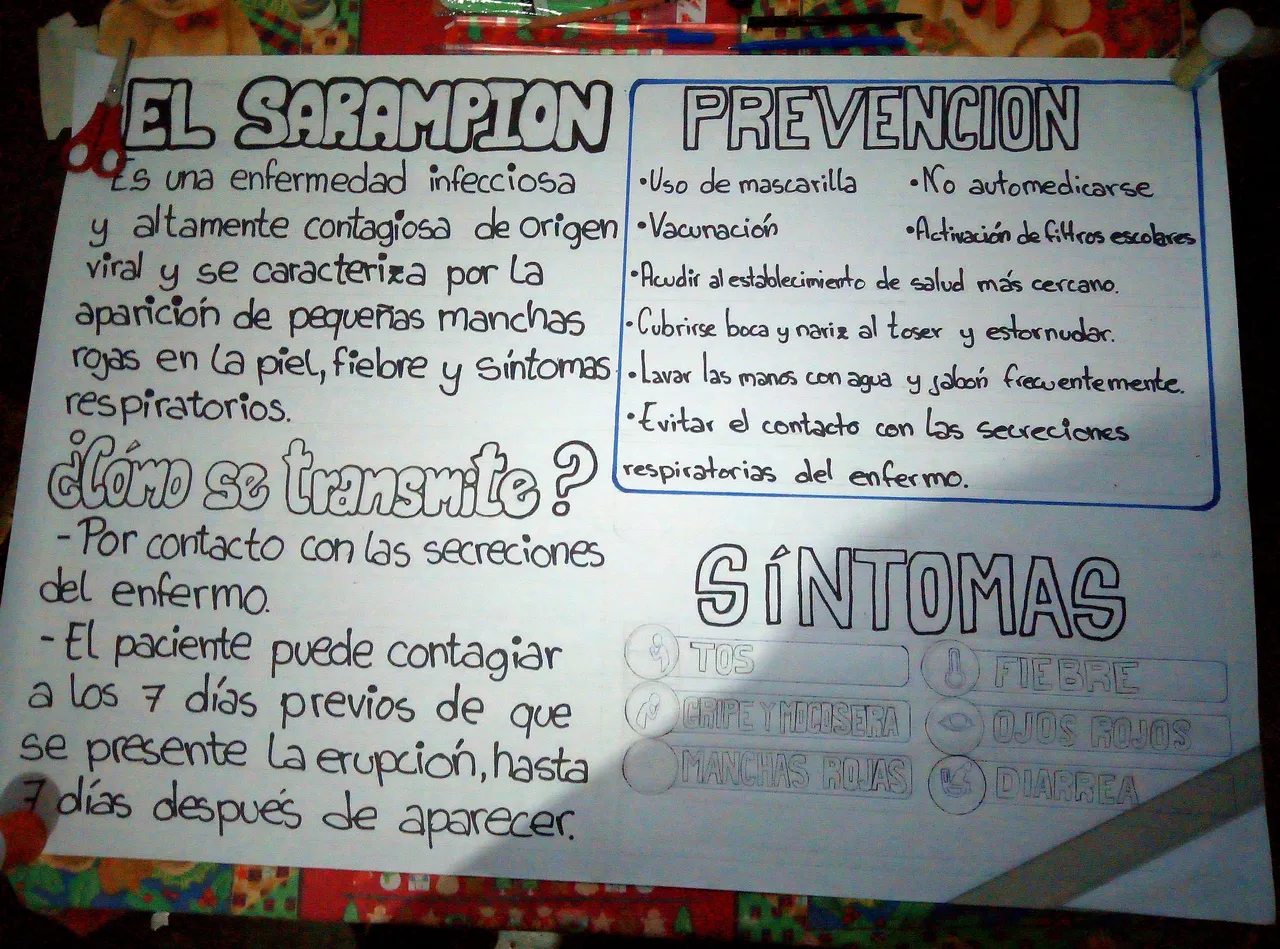 EL SARAMPION
Es una enfermedad infecciosa
y altamente contagiosa de origen
viral y se caracteriza por la
aparición de pequeñas manchas
rojas en la piel, fiebre y síntomas
respiratorios.
¿Cómo se transmite?
- Por contacto con las secreciones
del enfermo.
- El paciente puede contagiar
a los 7 días previos de que
se presente la erupción, hasta
7 días después de aparecer.
PREVENCION
•Uso de mascarilla
•No automedicarse
•Vacunación
•Activación de filtros escolares
•Acudir al establecimiento de salud más cercano.
•Cubrirse boca y nariz al toser y estornudar.
•Lavar las manos con agua y jabón frecuentemente.
•Evitar el contacto con las secreciones
respiratorias del enfermo.
SÍNTOMAS
TOS
FIEBRE
GRIPE Y MOCOSERA
OJOS ROJOS
MANCHAS ROJAS
DIARREA